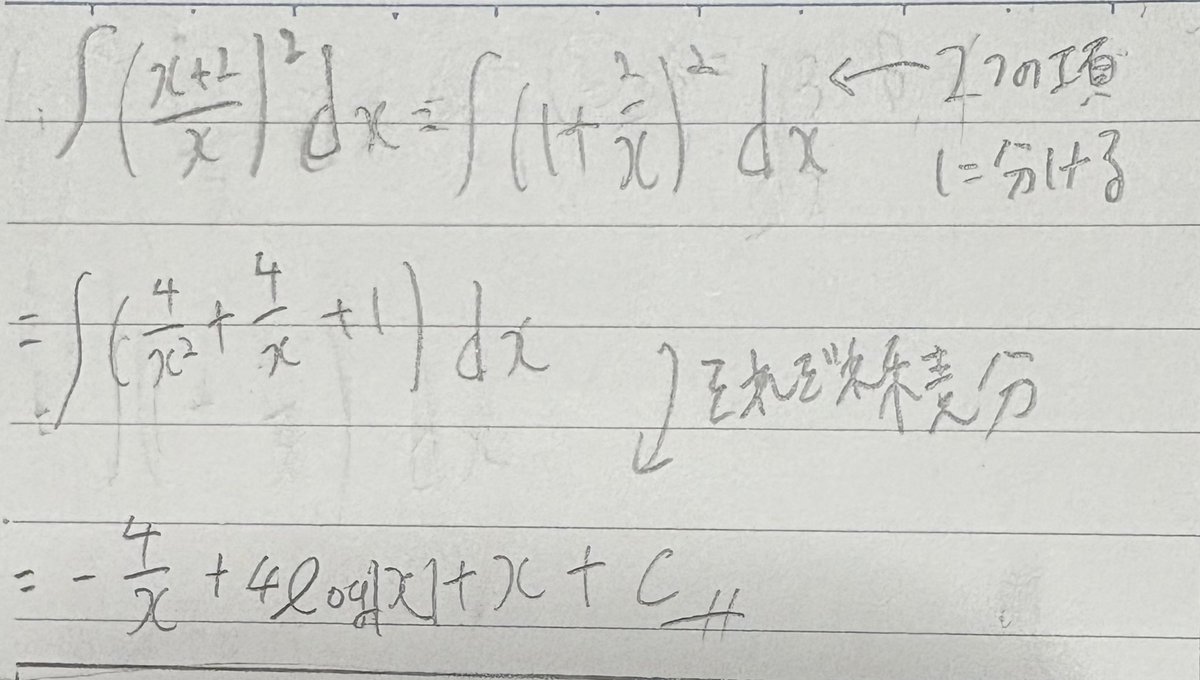 ∫((x+2)/x)² dx = ∫(1 + 2/x)² dx ← 2つの項
に分ける
= ∫(4/x² + 4/x + 1) dx
↓ それぞれ積分
= -4/x + 4log|x| + x + C